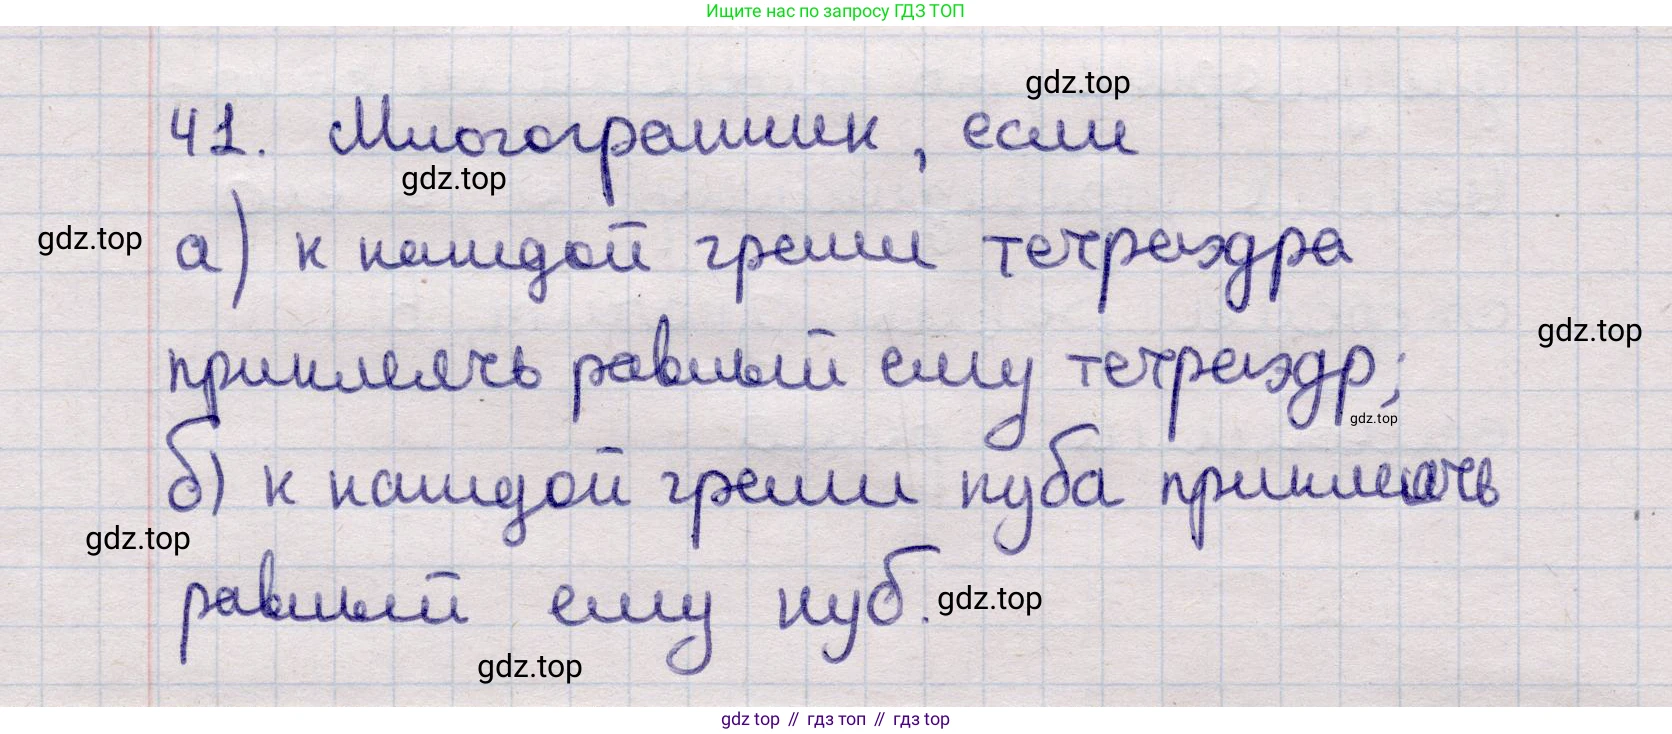 Ищите нас по запросу ГДЗ ТОП
gdz.top
41. Многогранник, если
gdz.top
gdz.top
а) к каждой грани тетраэдра
gdz.top
приклеять равный ему тетраэдр;
gdz.top
б) к каждой грани куба приклеять
gdz.top
равный ему куб.
gdz.top
gdz.top
gdz top // гдз топ // гдз top